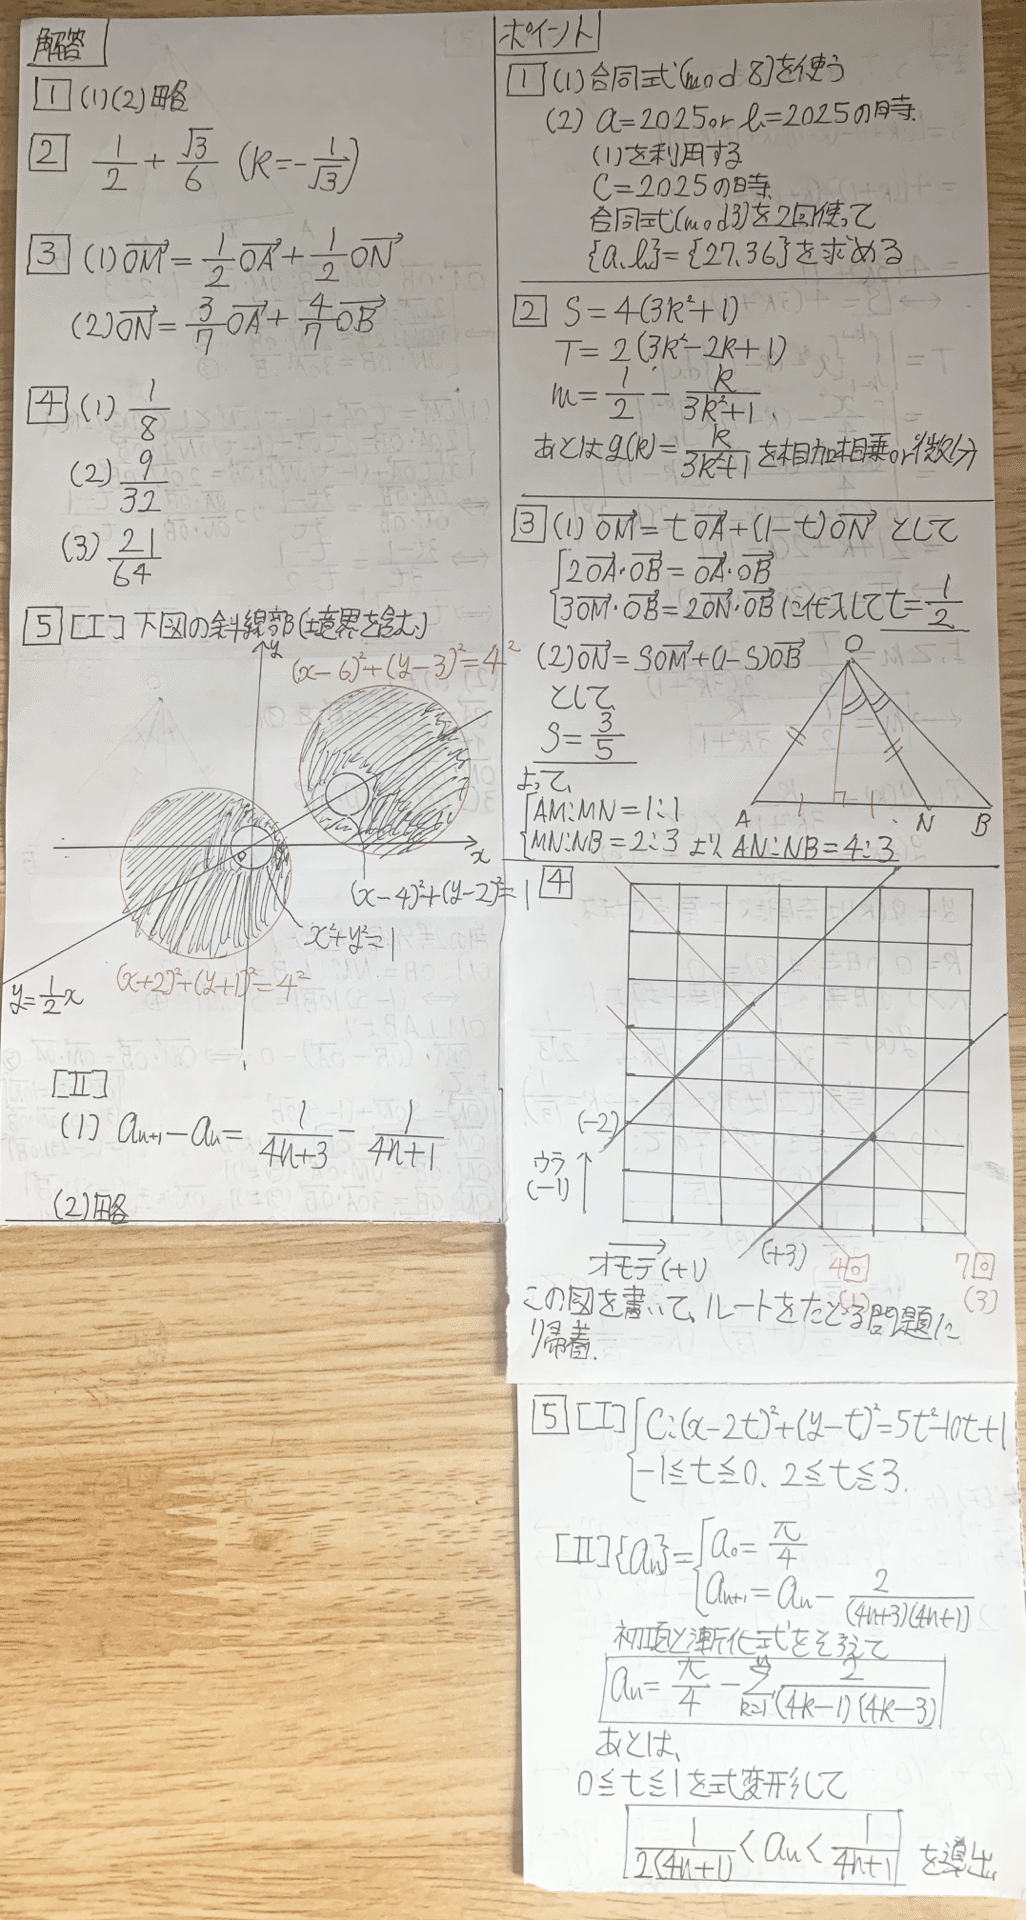 解答
1 (1)(2)略
2 1/2 + √3/6 (k=-1/√3)
3 (1) OM→ = 1/2 OA→ + 1/2 ON→
(2) ON→ = 3/7 OA→ + 4/7 OB→
4 (1) 1/8
(2) 9/32
(3) 21/64
5 [I] 下図の斜線部(境界を含む)
y
(x-6)²+(y-3)²=4²
x
O
(x-4)²+(y-2)²=1
x²+y²=1
(x+2)²+(y+1)²=4²
y=1/2x
[II]
(1) an+1-an= 1/(4n+3) - 1/(4n+1)
(2)略
ポイント
1 (1)合同式(mod 8)を使う
(2) a=2025 or b=2025の時
(1)を利用する
C=2025の時
合同式(mod3)を2回使って
{a,b}={27,36}を求める
2 S=4(3k²+1)
T=2(3k²-2k+1)
m=1/2 - k/(3k²+1)
あとはg(k)=k/(3k²+1)を相加相乗or微分
3 (1) OM→=tOA→+(1-t)ON→ として
2OA→・OB→=OA→・OB→
3OM→・OB→=2ON→・OB→に代入してt=1/2
(2) ON→=SOM→+(1-S)OB→
として
S=3/5
よって、
AM:MN=1:1
MN:NB=2:3 より AN:NB=4:3
O
A
N
B
4
(-2)
ウラ
(-1)
オモテ(+1)
(+3)
4回
(1)
7回
(3)
この図を書いて、ルートをたどる問題に
帰着.
5 [I] C:(x-2t)²+(y-t)²=5t²-10t+1
-1≦t≦0、2≦t≦3.
[II]{an}= a0=π/4
an+1=an- 2/(4n+3)(4n+1)
初項と漸化式をそろえて
an=π/4 - Σ k=1 n 2/(4k-1)(4k-3)
あとは、
0≦t≦1を式変形して
1/2(4n+1) < an < 1/(4n+1) を導出